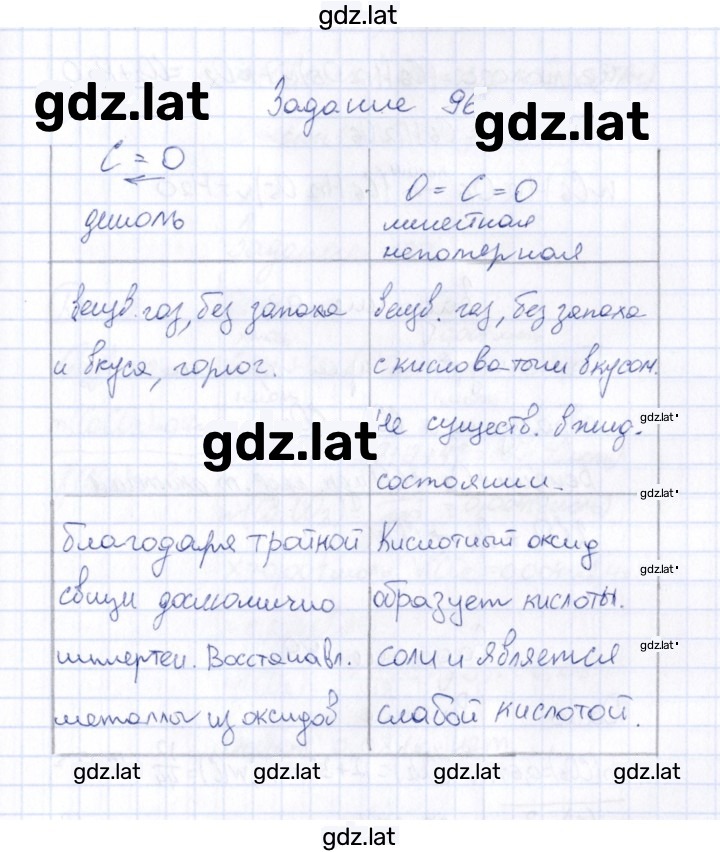 gdz.lat
Задание 96
gdz.lat
gdz.lat
C = O
диполь
O = C = O
линейная
неполярная
Бецв. газ, без запаха
и вкуса, горюч.
Бецв. газ, без запаха
с кисловатым вкусом.
Не существ. в жид.
состоянии.
gdz.lat
gdz.lat
gdz.lat
благодаря тройной
связи довольно
инертен. Восстанавл.
металлы из оксидов
Кислотный оксид
образует кислоты.
соли и является
слабой кислотой.
gdz.lat
gdz.lat
gdz.lat gdz.lat gdz.lat gdz.lat
gdz.lat